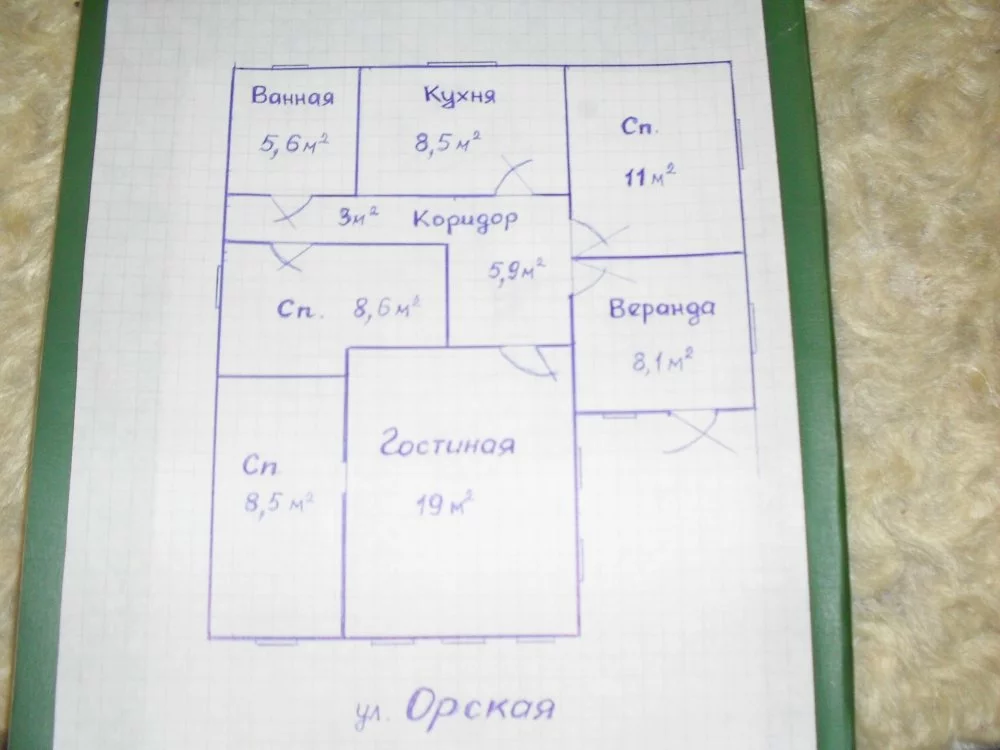 Ванная
5,6 м²
Кухня
8,5 м²
Сп.
11 м²
3м²
Коридор
5,9 м²
Сп. 8,6 м²
Веранда
8,1 м²
Сп
8,5 м²
Гостиная
19 м²
ул. Орская